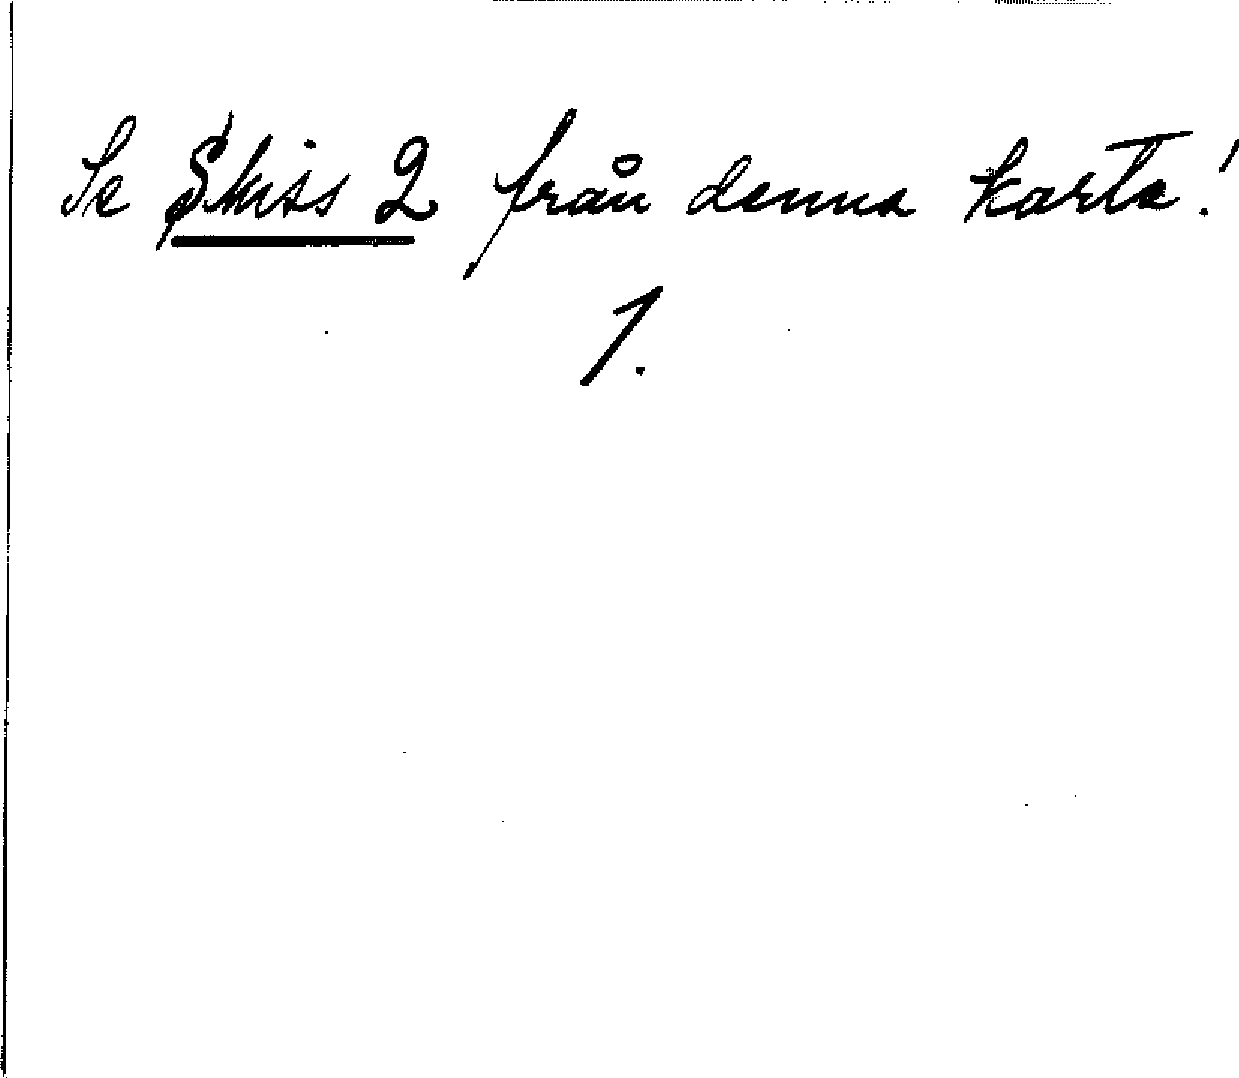 Se Skiss 2 från denna karta!
1.